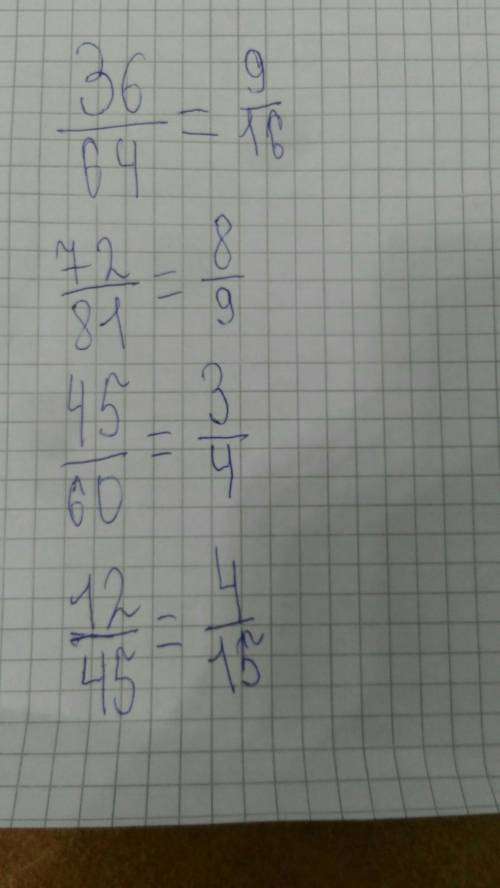 36/64 = 9/16
72/81 = 8/9
45/60 = 3/4
12/45 = 4/15